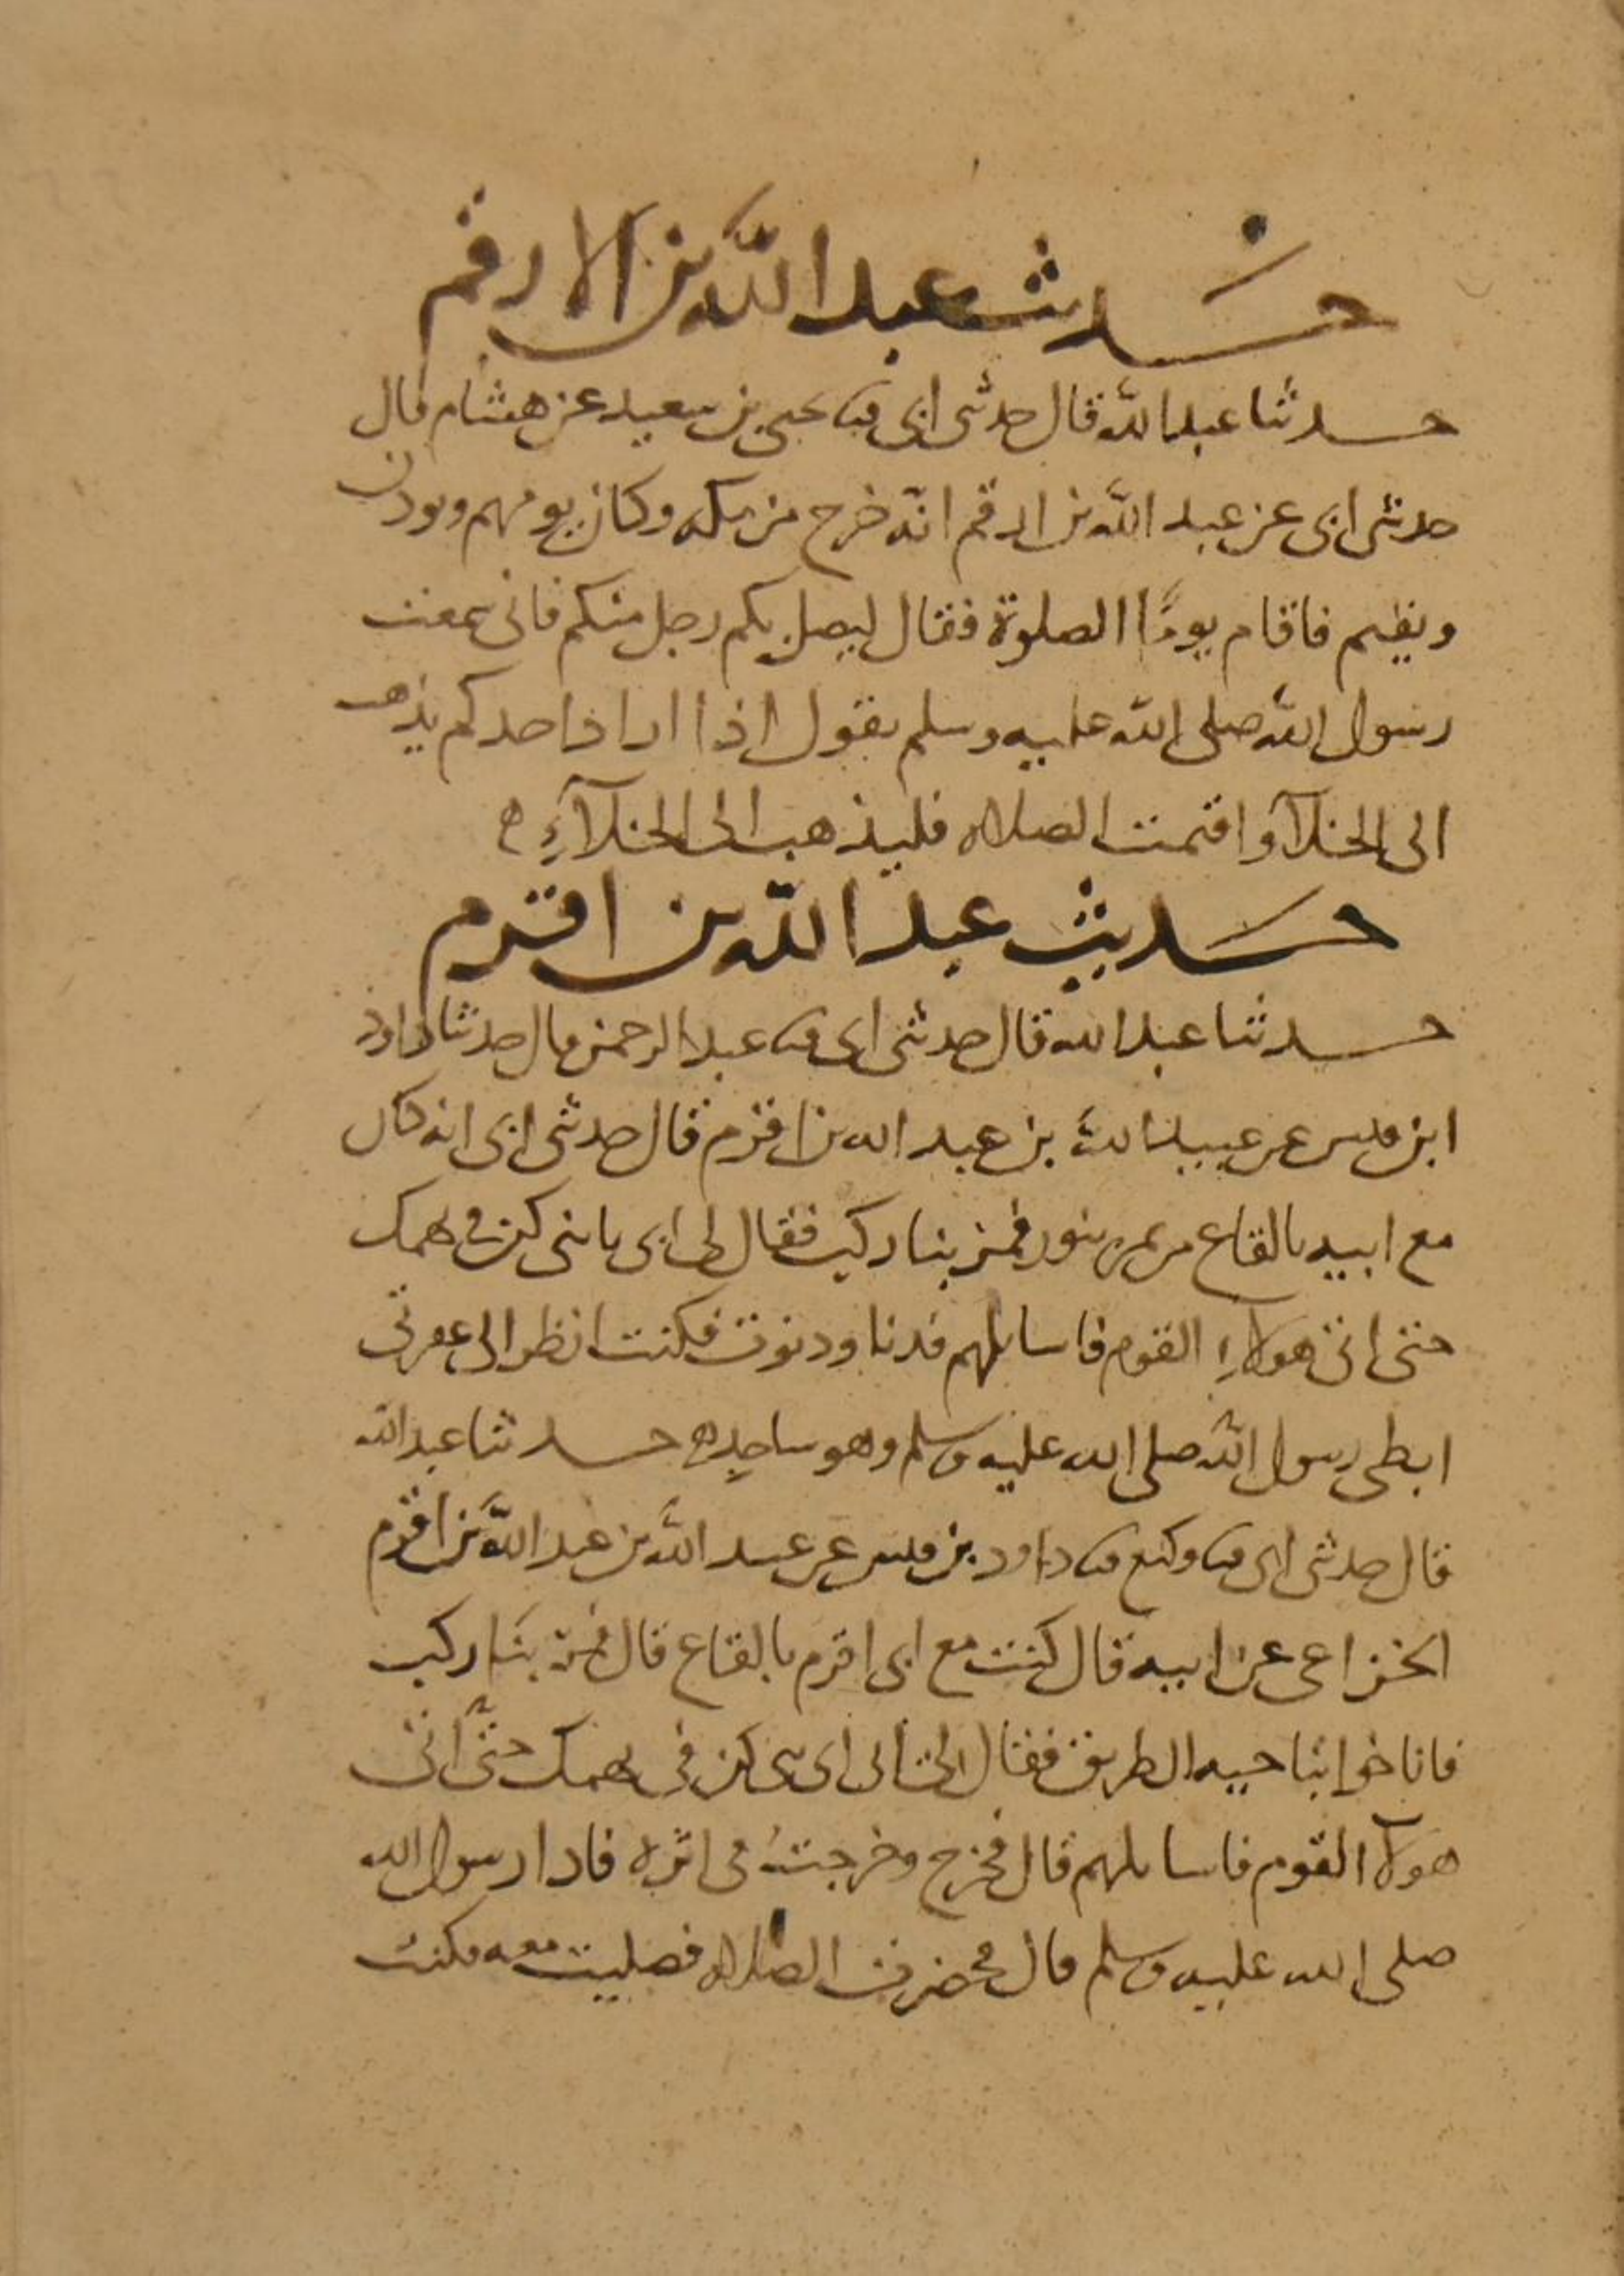 حديث عبد الله بن الارقم
حدثنا عبد الله قال حدثنى ابى قثنا يحيى بن سعيد عن هشام قال
حدثنى ابى عن عبد الله بن ارقم انه خرج من مكه وكان يومهم ويوذن
ويقيم فاقام يومًا الصلوة فقال ليصل بكم رجل منكم فانى سمعت
رسول الله صلى الله عليه وسلم يقول اذا اراد احدكم يذهب
الى الخلآ واقيمت الصلاه فليذهب الى الخلآءِ ه
حديث عبد الله بن اقرم
حدثنا عبد الله قال حدثنى ابى قثنا عبد الرحمن قال حدثنا داود
ابن قيس عن عبيد الله بن عبد الله بن اقرم قال حدثنى ابى انه كان
مع ابيه بالقاع من نمره فمر بنا ركب فقال لى ابى يا بنى كن فى بهمك
حتى اتى هولاءِ القوم فاسايلهم فدنا ودنوت فكنت انظر الى عفرتى
ابطى رسول الله صلى الله عليه وسلم وهو ساجد ه حدثنا عبد الله
قال حدثنى ابى قثنا وكيع قثنا داود بن قيس عن عبيد الله بن عبد الله بن اقرم
الخزاعى عن ابيه قال كنت مع ابى اقرم بالقاع قال فمر بنا ركب
فاناخوا بناحيه الطريق فقال لى ابى اى بنى كن فى بهمك حتى اتى
هولآ القوم فاسايلهم قال فخرج وخرجت فى اثره فاذا رسول الله
صلى الله عليه وسلم قال فحضرت الصلاه فصليت معه فكنت